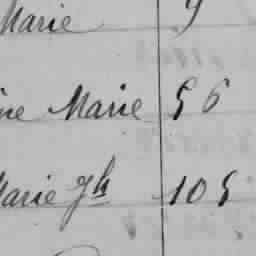 Marie 9
ne Marie 56
Marie Jh 105